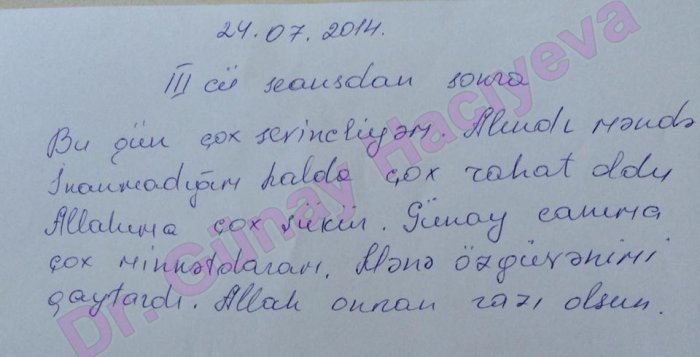 24.07.2014.
III cü seansdan sonra
Bu gün çox sevincliyəm. Alındı məndə
İnanmadığım halda çox rahat oldu
Allahıma çox şükür. Günay xanıma
çox minnətdaram. Mənə özgüvənimi
qaytardı. Allah onnan razı olsun.
Dr. Günay Hacıyeva